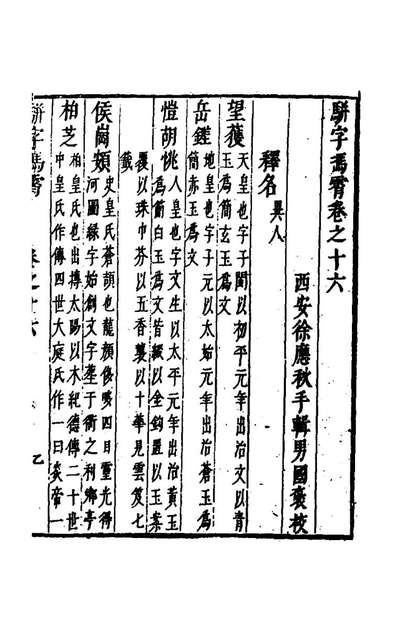 駢字馮霄卷之十六
西安徐應秋手輯男國袞校
釋名 異人
望獲 天皇也字子閏以初平元年出治文以青
玉爲簡玄玉爲文
岳鏗 地皇也字子元以太始元年出治蒼玉爲
簡赤玉爲文
愷胡桃 人皇也字文生以太平元年出治黃玉
爲簡白玉爲文皆綴以金鈎置以玉案
覆以珠巾芬以五香裹以十華見雲笈七
籤
侯岡頡 史皇氏蒼頡也龍顏侈哆四目靈光得
河圖緑字始創文字塟于衙之利鄉亭
柏芝 柏皇氏也出摶太陽以木紀德傳二十世
中皇氏作傳四世大庭氏作一曰炎帝一
駢字馮霄 卷之十六